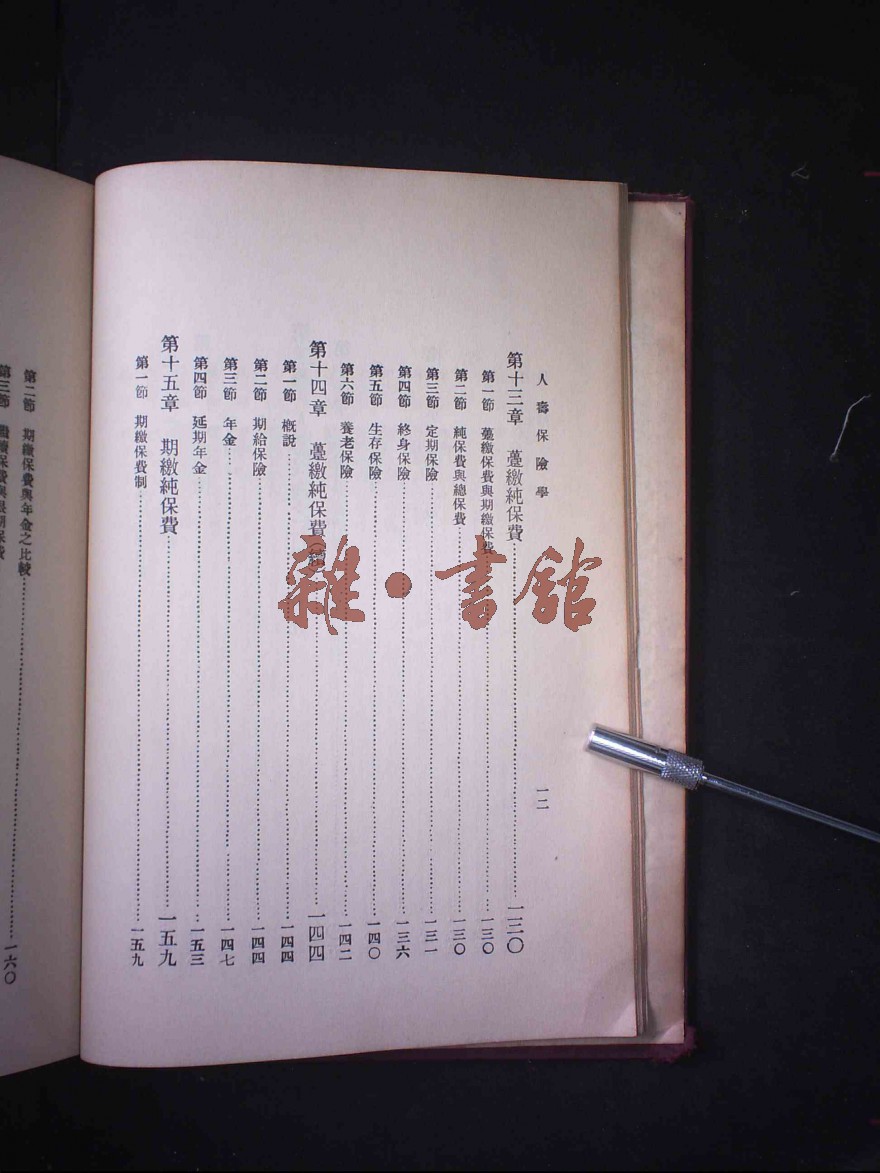 人壽保險學
一二
第十三章 躉繳純保費……一三〇
第一節 躉繳保費與期繳保費……一三〇
第二節 純保費與總保費……一三〇
第三節 定期保險……一三一
第四節 終身保險……一三六
第五節 生存保險……一四〇
第六節 養老保險……一四二
第十四章 躉繳純保費(續)……一四四
第一節 概說……一四四
第二節 期給保險……一四四
第三節 年金……一四七
第四節 延期年金……一五三
第十五章 期繳純保費……一五九
第一節 期繳保費制……一五九
第二節 期繳保費與年金之比較……一六〇
第三節
雜·書館